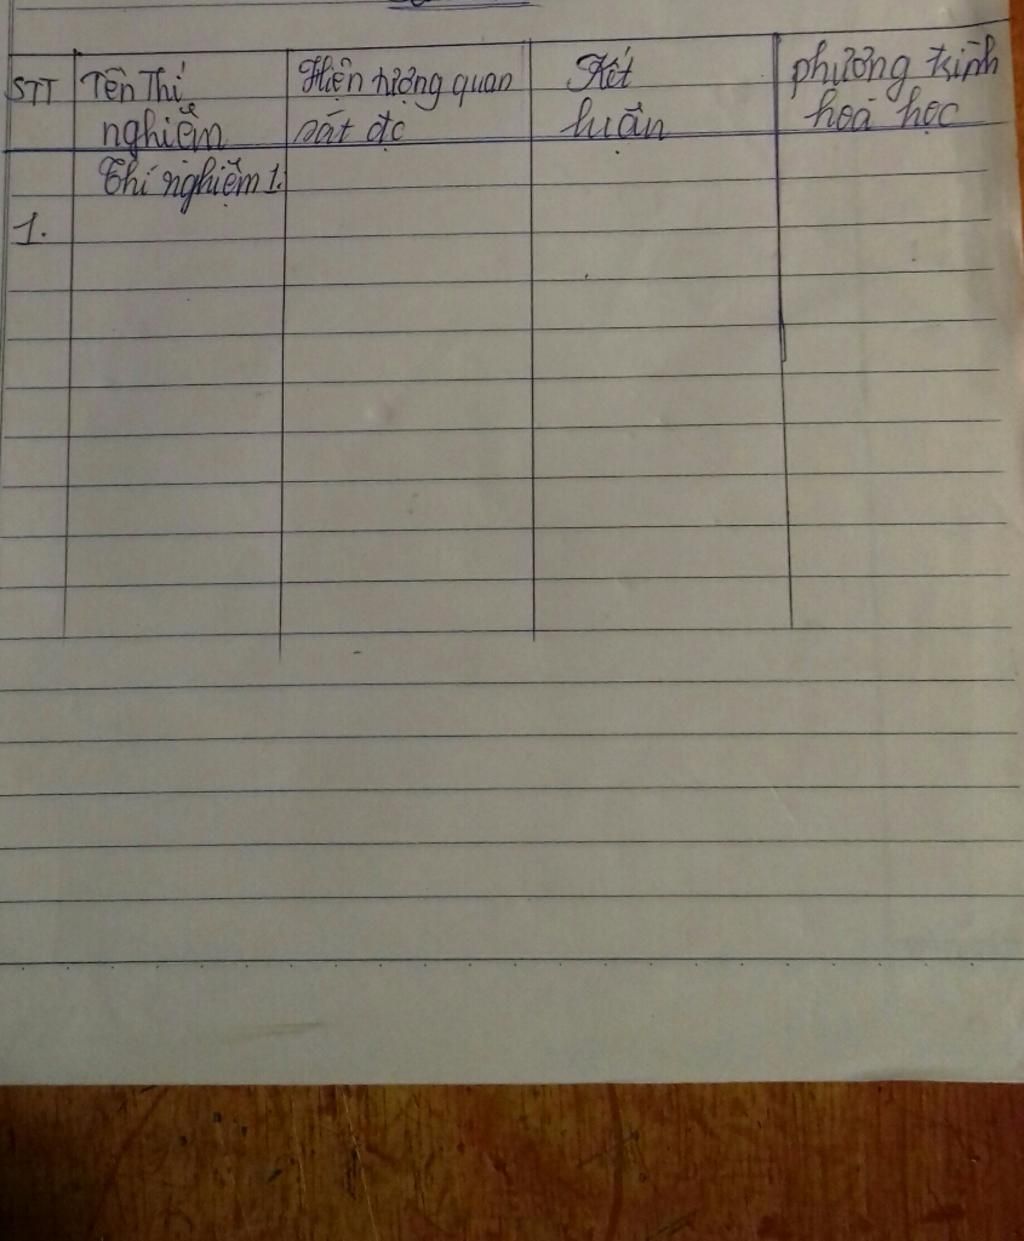 STT Tên Thí Hiện tượng quan Kết phương trình
nghiệm sát đc luận hoá học
Thí nghiệm 1.
1.